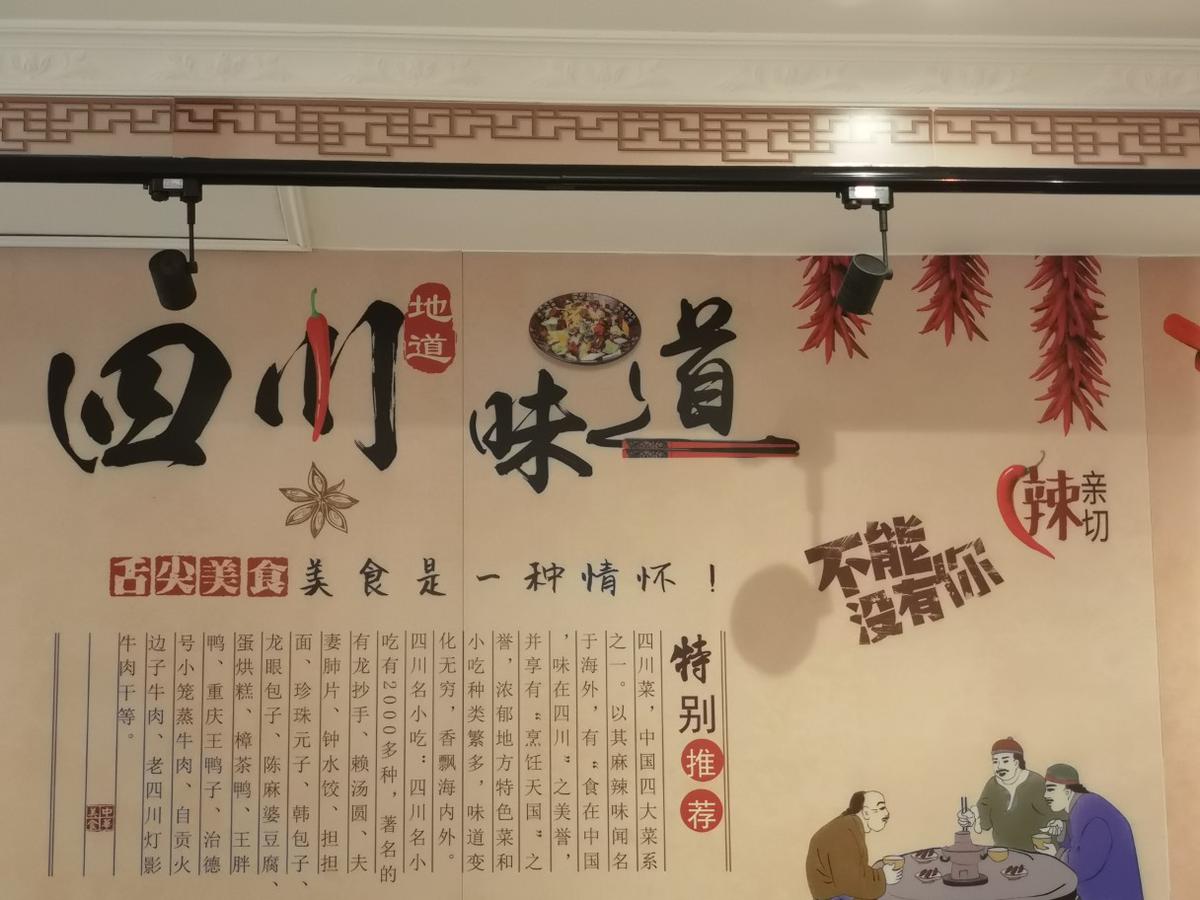 四川
地道
味道
辣
亲切
不能
没有你
舌尖美食美食是一种情怀！
特别推荐
四川菜，中国四大菜系
之一。以其麻辣味闻名
于海外，有“食在中国
，味在四川”之美誉，
并享有“烹饪天国”之
誉，浓郁地方特色菜和
小吃种类繁多，味道变
化无穷，香飘海内外。
四川名小吃“四川名小
吃有2000多种，著名的
有龙抄手、赖汤圆、夫
妻肺片、钟水饺、担担
面、珍珠元子、韩包子、
龙眼包子、陈麻婆豆腐、
蛋烘糕、樟茶鸭、王胖
鸭、重庆王鸭子、治德
号小笼蒸牛肉、自贡火
边子牛肉、老四川灯影
牛肉干等。
中华
美食